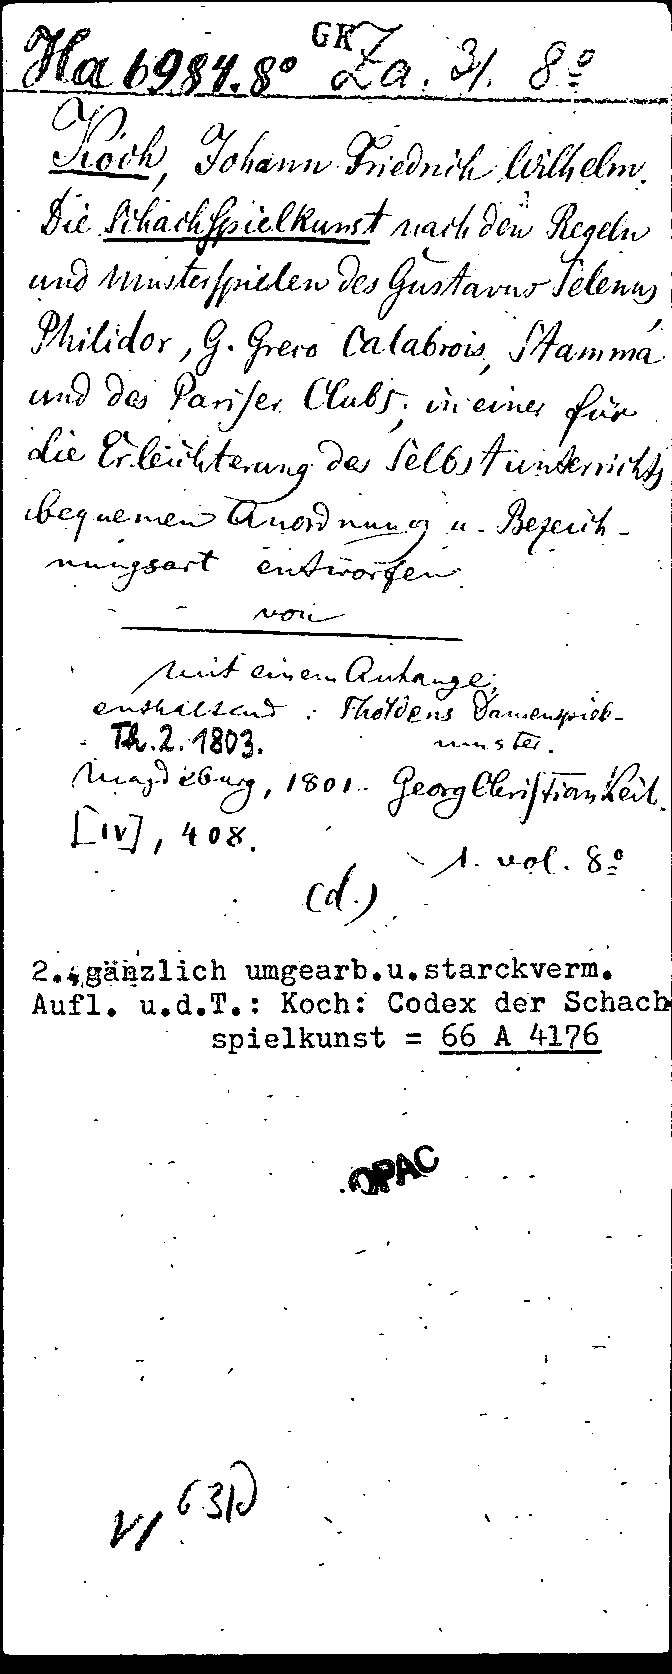 Ha 6984.8° GK Za. 31. 8°
Koch, Johann Friedrich Wilhelm.
Die Schachspielkunst nach den Regeln
und Musterspielen des Gustavus Selenus,
Philidor, G. Greco Calabrois, Stamma
und des Pariser Clubs; in einer für
die Erleichterung des Selbstunterrichts
bequemen Anordnung u. Bezeich-
nungsart entworfen
von
mit einem Anhange,
enthaltend: Tholdens Damenspiel-
Th. 2. 1803. muster.
Magdeburg, 1801. Georg Christian Keil.
[IV], 408.
1. vol. 8°
(d.)
2., gänzlich umgearb.u.starckverm.
Aufl. u.d.T.: Koch: Codex der Schach
spielkunst = 66 A 4176
OPAC